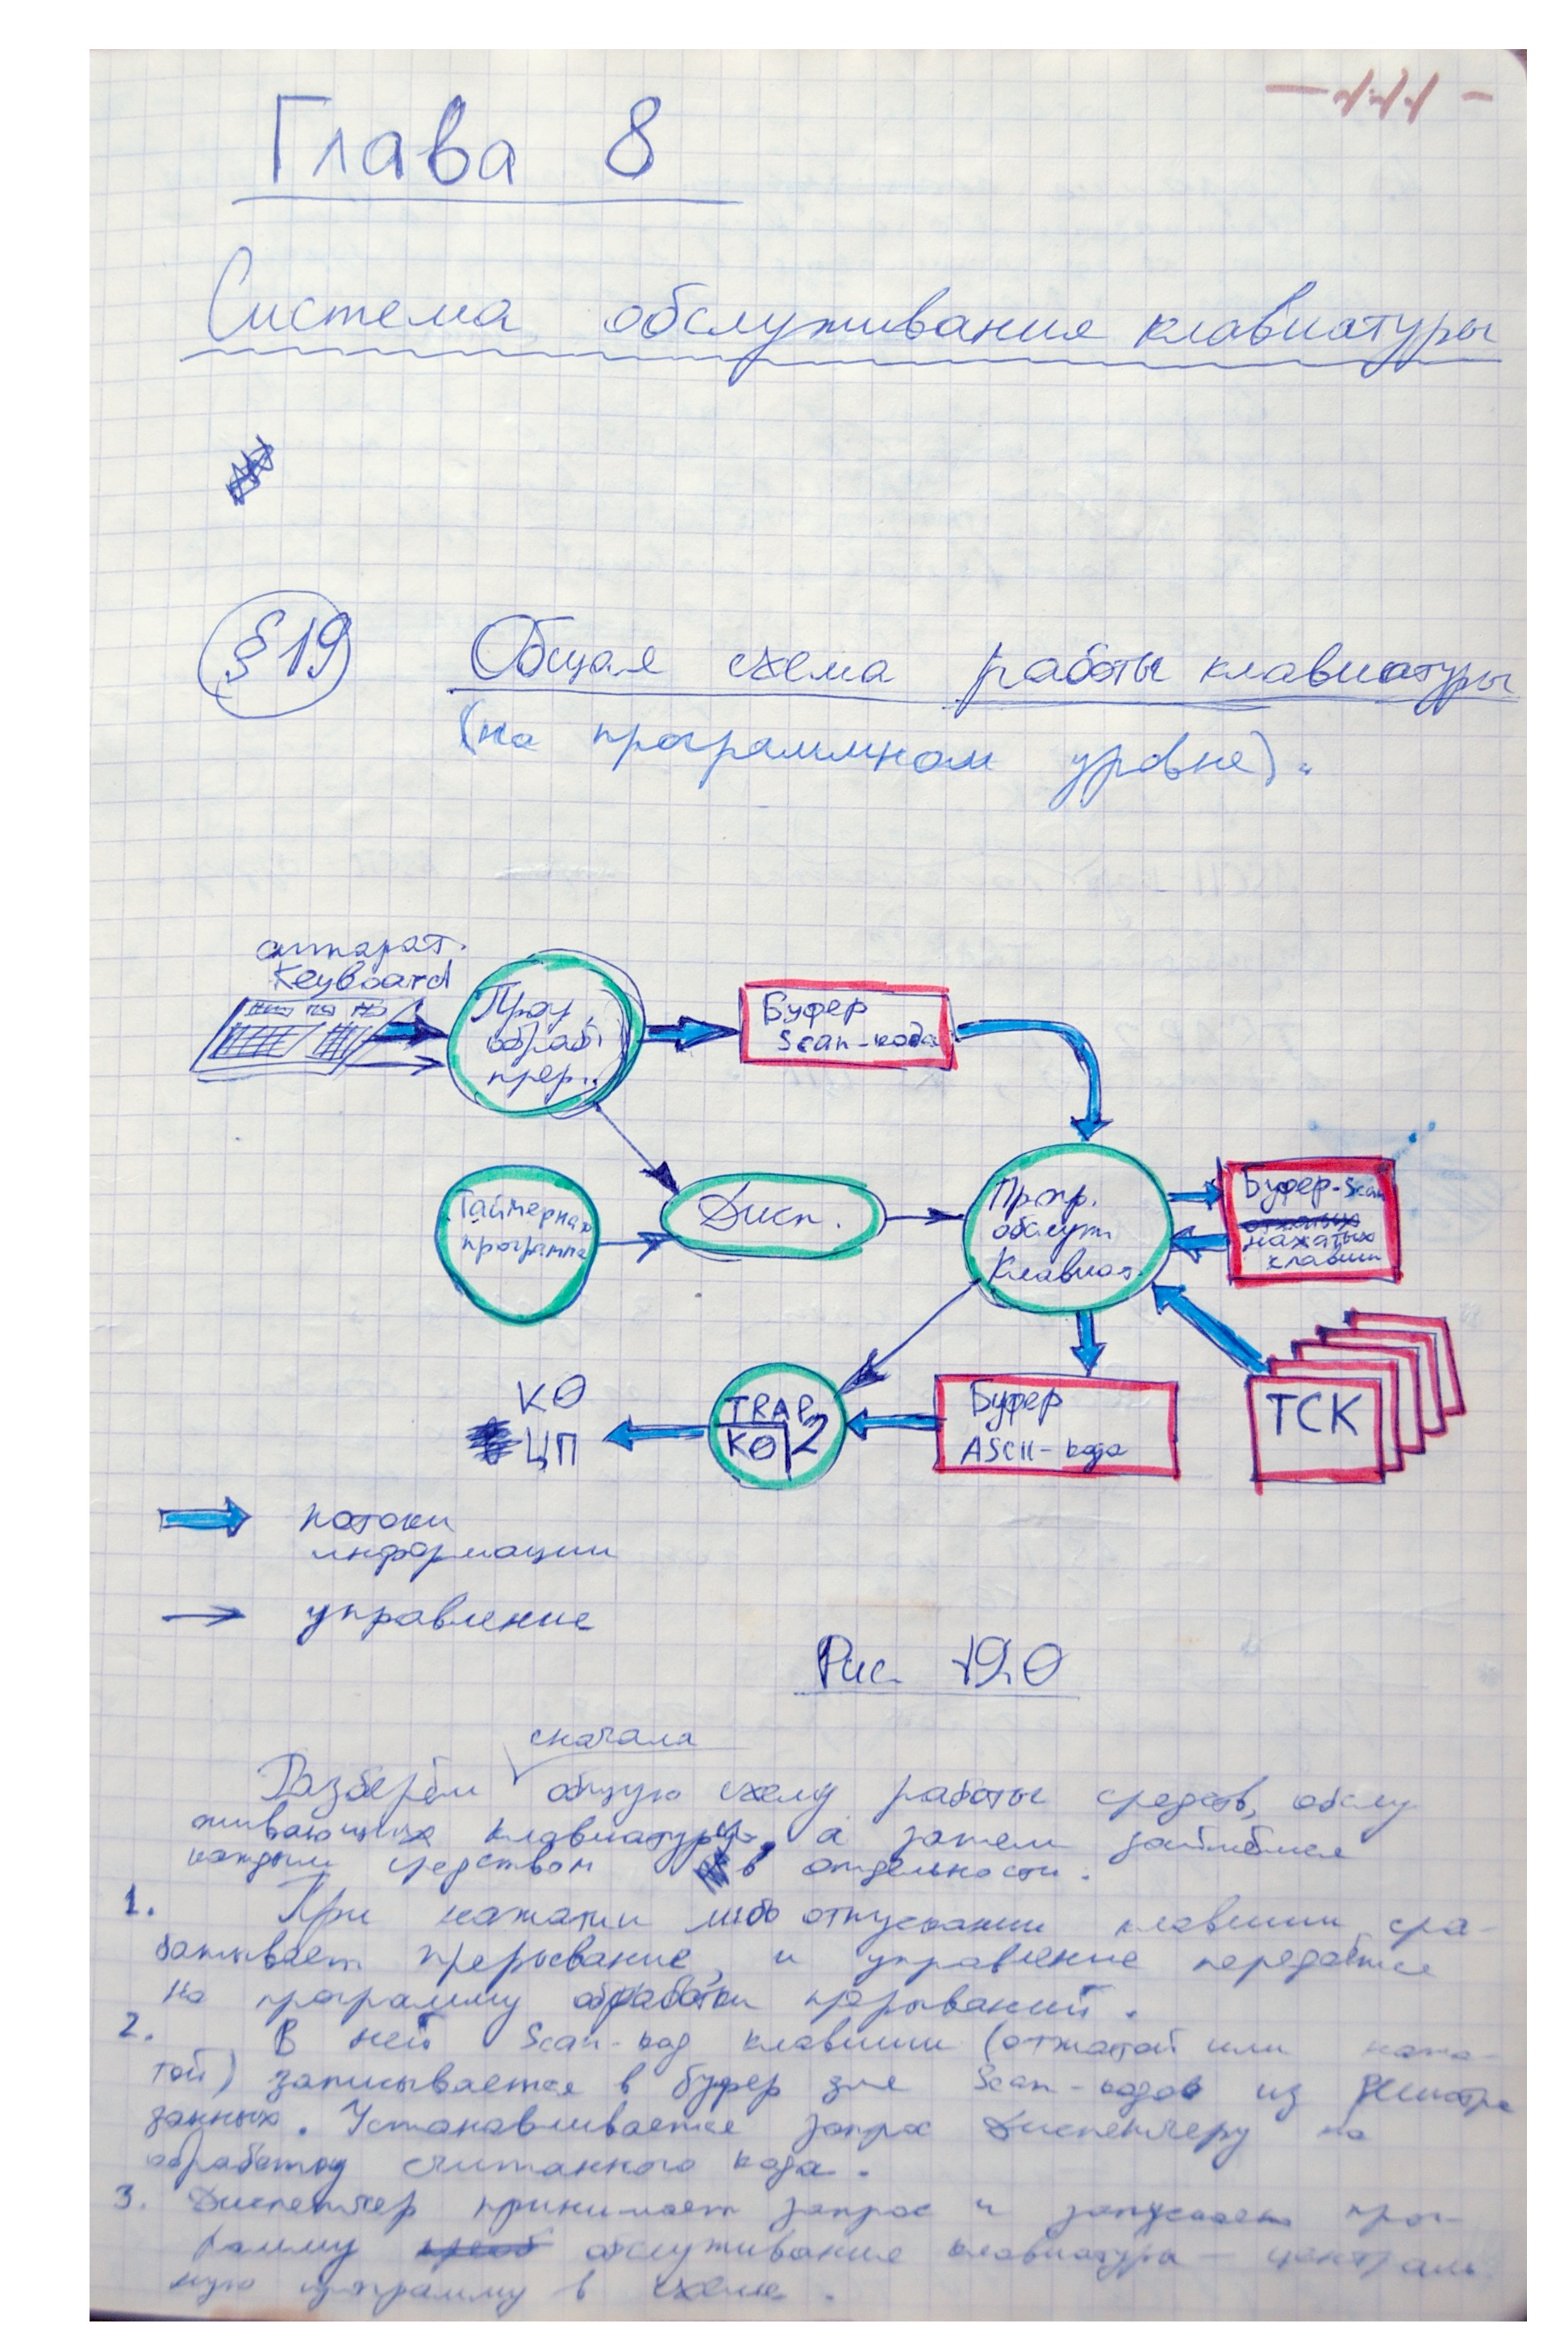 - 141 -
Глава 8
Система обслуживания клавиатуры
§ 19
Общая схема работы клавиатуры
(на программном уровне).
аппарат.
Keyboard
Прог.
обраб.
прер..
Буфер
Scan-кода
Таймерная
программа
Дисп.
Прогр.
обслуж.
Клавиат.
Буфер-Scan
нажатых
клавиш
КО
ЦП
TRAP
КО 2
Буфер
ASCII-кода
ТСК
потоки
информации
управление
Рис. 19.0
сначала
Разберём общую схему работы средств, обслу
живающих клавиатуру, а затем займёмся
каждым средством в отдельности.
1. При нажатии либо отпускании клавиши сра-
батывает прерывание, и управление передаётся
на программу обработки прерываний.
2. В ней Scan-код клавиши (отжатой или нажа-
той) записывается в буфер для Scan-кодов из регистра
данных. Устанавливается запрос Диспетчеру на
обработку считанного кода.
3. Диспетчер принимает запрос и запускает прог-
рамму обслуживания клавиатуры — централь
ную программу в схеме.